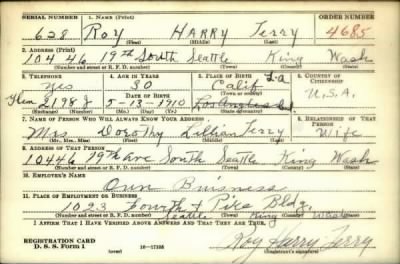 SERIAL NUMBER 1. NAME (Print) ORDER NUMBER
628 ROY HARRY Terry 4685
(First) (Middle) (Last)
2. ADDRESS (Print)
10446 19th South Seattle King Wash
(Number and street or R. F. D. number) (Town) (County) (State)
3. TELEPHONE 4. AGE IN YEARS 5. PLACE OF BIRTH 6. COUNTRY OF CITIZENSHIP
Yes 30 Calif La
DATE OF BIRTH
Glen 2198J 5-13-1910 Los Angeles U.S.A.
(Exchange) (Number) (Mo.) (Day) (Yr.) (State or country)
7. NAME OF PERSON WHO WILL ALWAYS KNOW YOUR ADDRESS 8. RELATIONSHIP OF THAT PERSON
Mrs Dorothy Lillian Terry Wife
(Mr., Mrs., Miss) (First) (Middle) (Last)
9. ADDRESS OF THAT PERSON
10446 19th Ave South Seattle King Wash
(Number and street or R. F. D. number) (Town) (County) (State)
10. EMPLOYER'S NAME
Own Buisness
11. PLACE OF EMPLOYMENT OR BUSINESS
1023 Fourth & Pike Bldg.
Seattle King Wash
(Number and street or R. F. D. number) (Town) (County) (State)
I AFFIRM THAT I HAVE VERIFIED ABOVE ANSWERS AND THAT THEY ARE TRUE.
REGISTRATION CARD
D. S. S. Form 1 16-17105 Roy Harry Terry